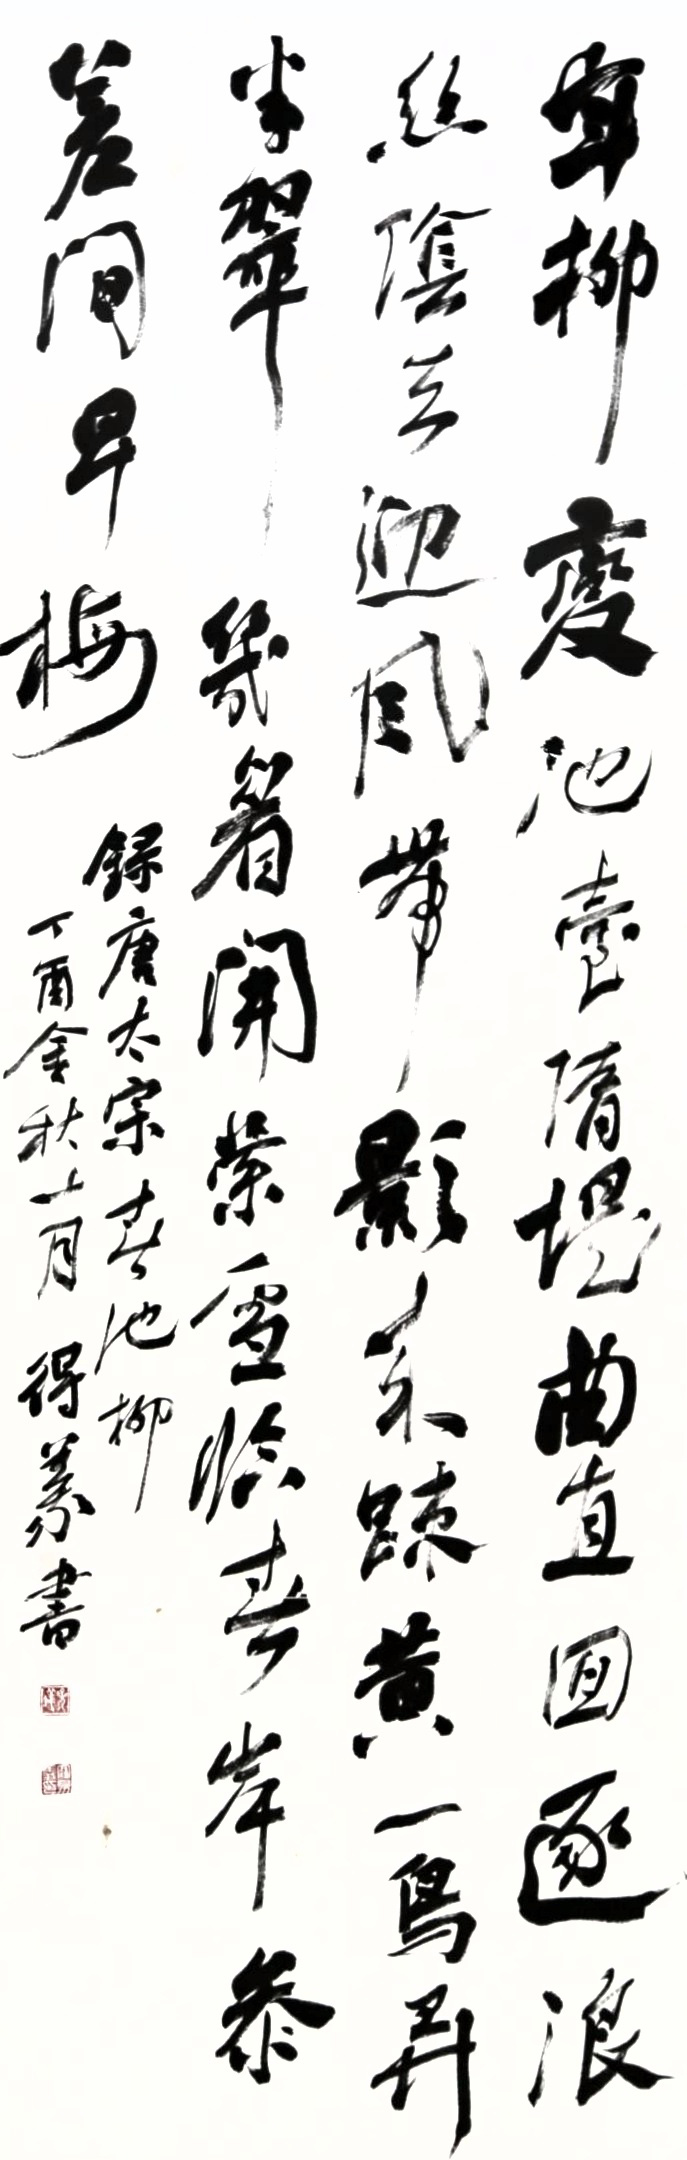 年柳變池臺隋堤曲直回逐浪
絲陰去迎風帶影來疎黃一鳥弄
半翠幾眉開縈雪臨春岸參
差間早梅
錄唐太宗春池柳
丁酉金秋十月得義書